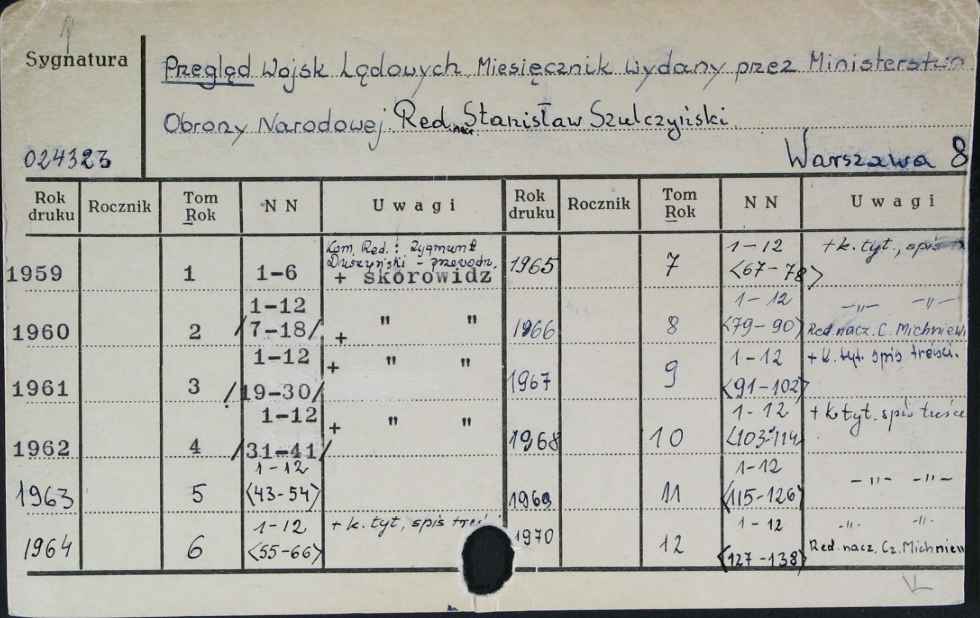 Sygnatura
Przegląd Wojsk Lądowych Miesięcznik wydany przez Ministerstwo
Obrony Narodowej. Red. nacz. Stanisław Szulczyński.
024323
Warszawa 8
Rok druku Rocznik Tom Rok N N Uwagi Rok druku Rocznik Tom Rok N N Uwagi
1959 1 1-6 Kom. Red.: Zygmunt Duszyński - przewodn. + skorowidz 1965 7 1-12 <67-78> + k. tyt., spis
1960 2 1-12 /7-18/ + " " 1966 8 1-12 <79-90> -"- -"- Red. nacz. C. Michniew
1961 3 1-12 /19-30/ + " " 1967 9 1-12 <91-102> + k. tyt spis treści.
1962 4 1-12 /31-41/ + " " 1968 10 1-12 <103-114> + k. tyt. spis treści
1963 5 1-12 <43-54> 1969 11 1-12 <115-126> -"- -"-
1964 6 1-12 <55-66> + k. tyt, spis treści 1970 12 1-12 <127-138> -"- -"- Red. nacz. Cz. Michniew